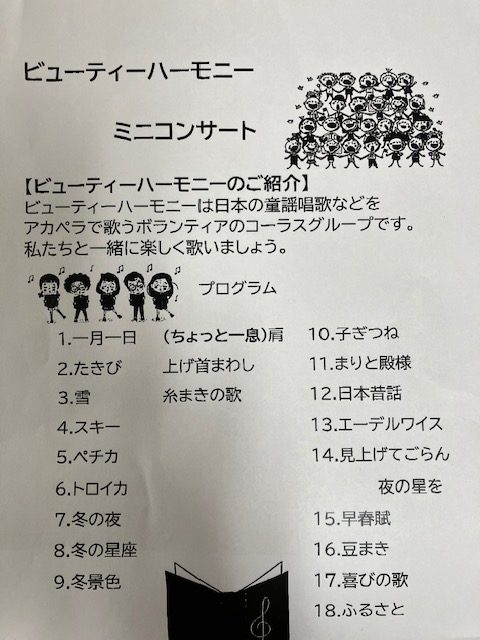 ビューティーハーモニー
ミニコンサート
【ビューティーハーモニーのご紹介】
ビューティーハーモニーは日本の童謡唱歌などを
アカペラで歌うボランティアのコーラスグループです。
私たちと一緒に楽しく歌いましょう。
プログラム
1.一月一日
2.たきび
3.雪
4.スキー
5.ペチカ
6.トロイカ
7.冬の夜
8.冬の星座
9.冬景色
(ちょっと一息)肩
上げ首まわし
糸まきの歌
10.子ぎつね
11.まりと殿様
12.日本昔話
13.エーデルワイス
14.見上げてごらん
夜の星を
15.早春賦
16.豆まき
17.喜びの歌
18.ふるさと